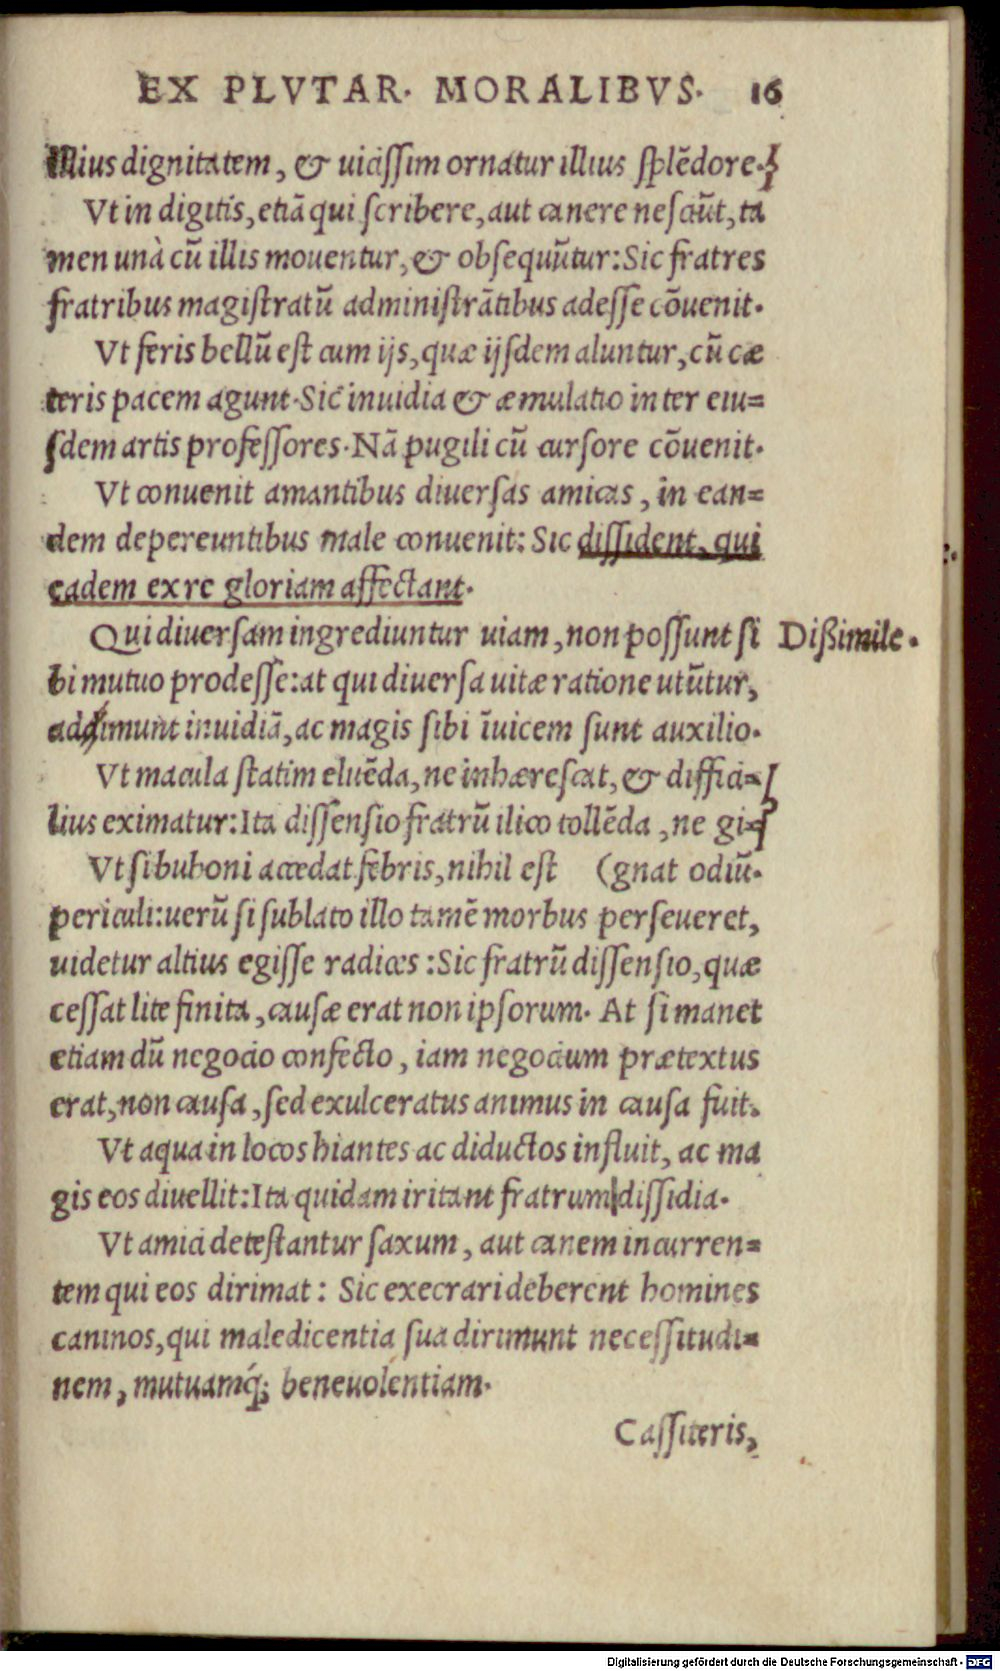 EX PLVTAR. MORALIBVS. 16
illius dignitatem, & uicissim ornatur illius splēdore.
Vt in digitis, etiā qui scribere, aut canere nesciūt, ta
men unà cū illis mouentur, & obsequūtur: Sic fratres
fratribus magistratū administrātibus adesse cōuenit.
Vt feris bellū est cum ijs, quæ ijsdem aluntur, cū cæ
teris pacem agunt. Sic inuidia & æmulatio inter eiu=
sdem artis professores. Nā pugili cū cursore cōuenit.
Vt conuenit amantibus diuersas amicas, in ean=
dem depereuntibus male conuenit: Sic dissident, qui
eadem ex re gloriam affectant.
Qui diuersam ingrediuntur uiam, non possunt si
Dißimile.
bi mutuo prodesse: at qui diuersa uitæ ratione utūtur,
adimunt inuidiā, ac magis sibi īuicem sunt auxilio.
Vt macula statim eluēda, ne inhærescat, & diffici=
lius eximatur: Ita dissensio fratrū ilico tollēda, ne gi=
Vt si buboni accedat febris, nihil est (gnat odiū.
periculi: uerū si sublato illo tamē morbus perseueret,
uidetur altius egisse radices: Sic fratrū dissensio, quæ
cessat lite finita, causæ erat non ipsorum. At si manet
etiam dū negocio confecto, iam negocium prætextus
erat, non causa, sed exulceratus animus in causa fuit.
Vt aqua in locos hiantes ac diductos influit, ac ma
gis eos diuellit: Ita quidam iritant fratrum dissidia.
Vt amici detestantur saxum, aut canem incurren=
tem qui eos dirimat: Sic execrari deberent homines
caninos, qui maledicentia sua dirimunt necessitudi=
nem, mutuamq́; beneuolentiam.
Cassiteris,
Digitalisierung gefördert durch die Deutsche Forschungsgemeinschaft - DFG